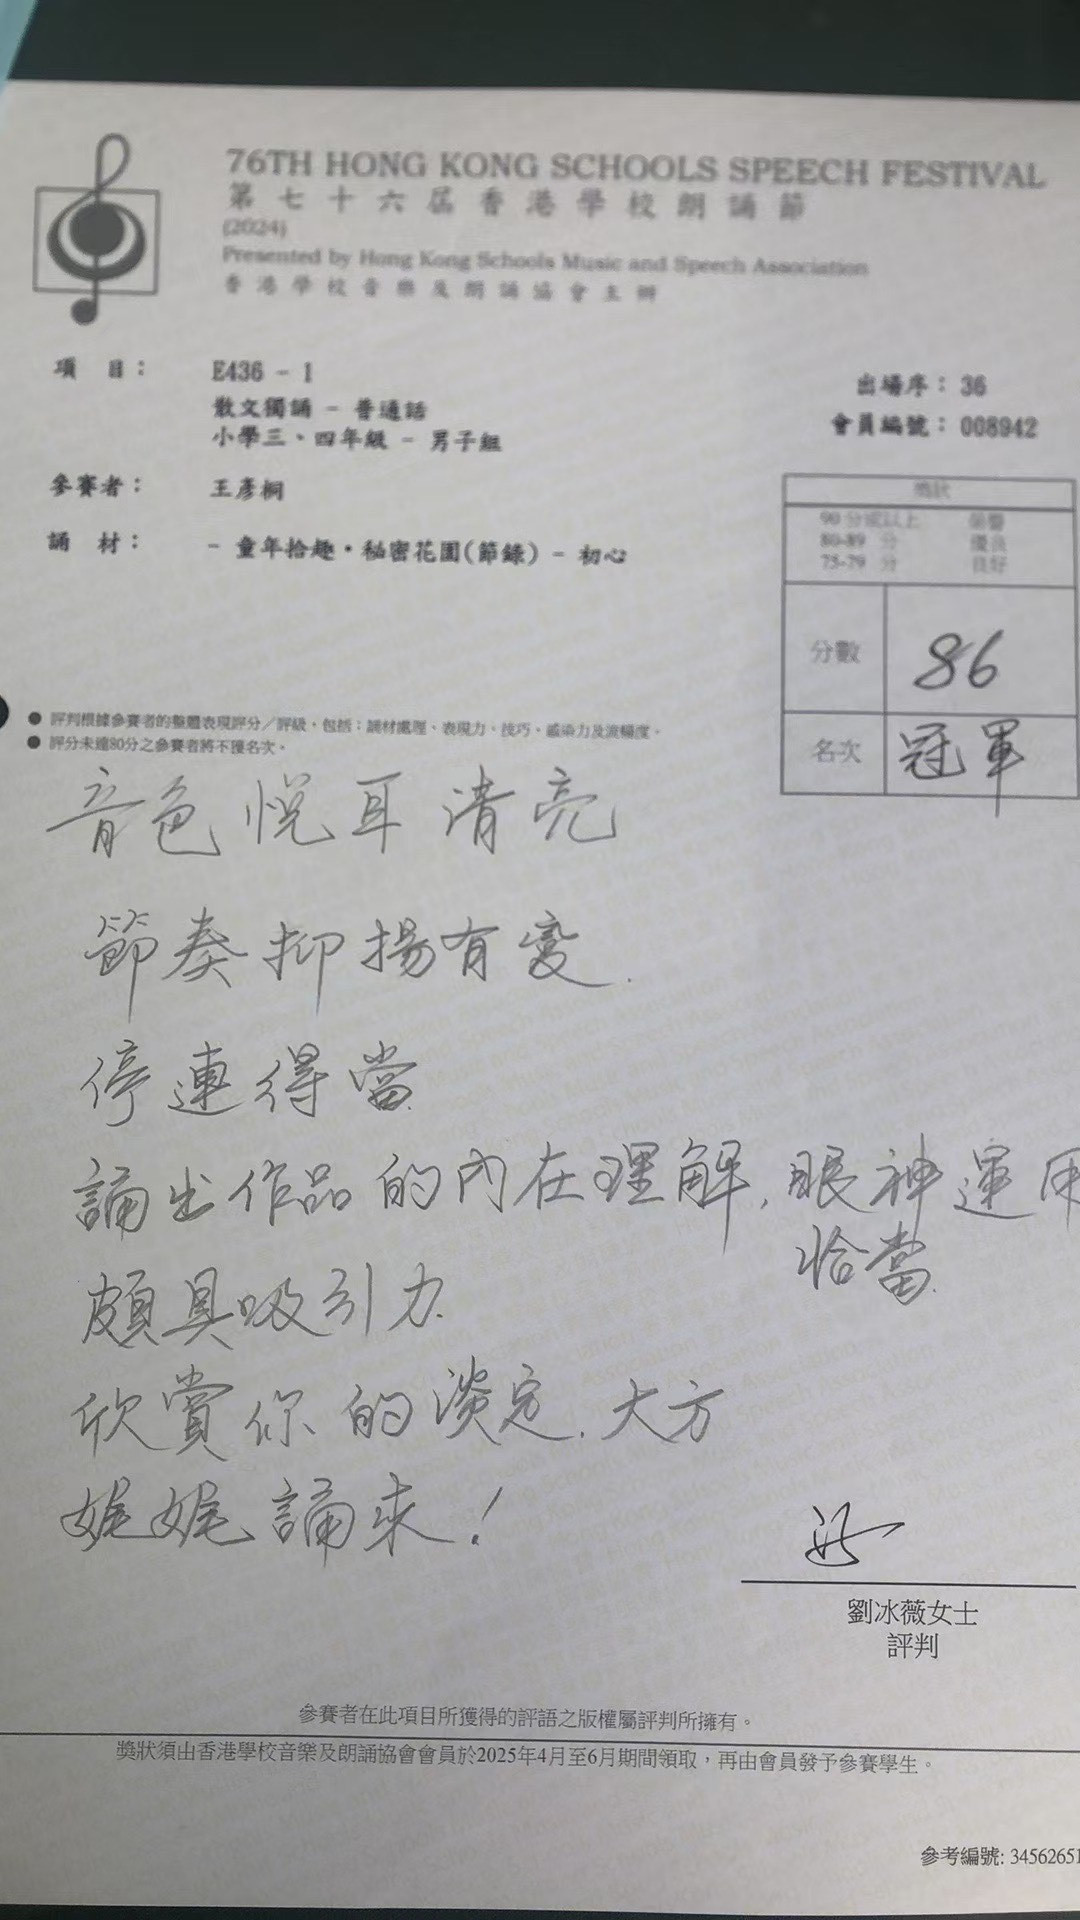 76TH HONG KONG SCHOOLS SPEECH FESTIVAL
第七十六屆香港學校朗誦節
(2024)
Presented by Hong Kong Schools Music and Speech Association
香港學校音樂及朗誦協會主辦
項 目： E436 - 1
散文獨誦 - 普通話
小學三、四年級 - 男子組
出場序： 36
會員編號： 008942
參賽者： 王彥桐
誦 材： - 童年拾趣・秘密花園(節錄) - 初心
獎狀
90 分或以上 榮譽
80-89 分 優良
75-79 分 良好
分數 86
名次 冠軍
● 評判根據參賽者的整體表現評分／評級，包括：誦材處理、表現力、技巧、感染力及流暢度。
● 評分未達80分之參賽者將不獲名次。
音色悅耳清亮
節奏抑揚有變.
停連得當
誦出作品的內在理解, 眼神運用
恰當.
頗具吸引力.
欣賞你的淡定. 大方
娓娓誦來！
劉冰薇女士
評判
參賽者在此項目所獲得的評語之版權屬評判所擁有。
獎狀須由香港學校音樂及朗誦協會會員於2025年4月至6月期間領取，再由會員發予參賽學生。
參考編號: 34562651